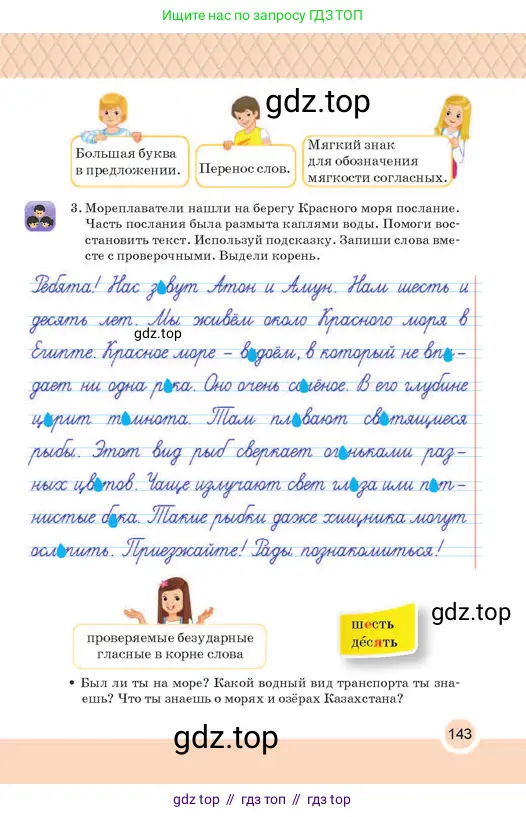 Ищите по запросу ГДЗ ТОП
gdz.top
Большая буква
в предложении.
Перенос слов.
Мягкий знак
для обозначения
мягкости согласных.
3. Мореплаватели нашли на берегу Красного моря послание.
Часть послания была размыта каплями воды. Помоги вос-
становить текст. Используй подсказку. Запиши слова вме-
сте с проверочными. Выдели корень.
Ребята! Нас з вут Атон и Амун. Нам шесть и
десять лет. Мы живём около Красного моря в
gdz.top
Египте. Красное море – в доём, в который не впа-
дает ни одна р ка. Оно очень с лёное. В его глубине
ц рит т мнота. Там пл вают св тящиеся
рыбы. Этот вид рыб сверкает ог ньками раз-
ных цв тов. Чаще излучают свет гл за или п т-
нистые б ка. Такие рыбки даже хищника могут
осл пить. Приезжайте! Рады познакомиться!
проверяемые безударные
гласные в корне слова
шесть
де́сять
gdz.top
• Был ли ты на море? Какой водный вид транспорта ты зна-
ешь? Что ты знаешь о морях и озёрах Казахстана?
gdz.top
143
gdz.top // gdz.top // gdz.top